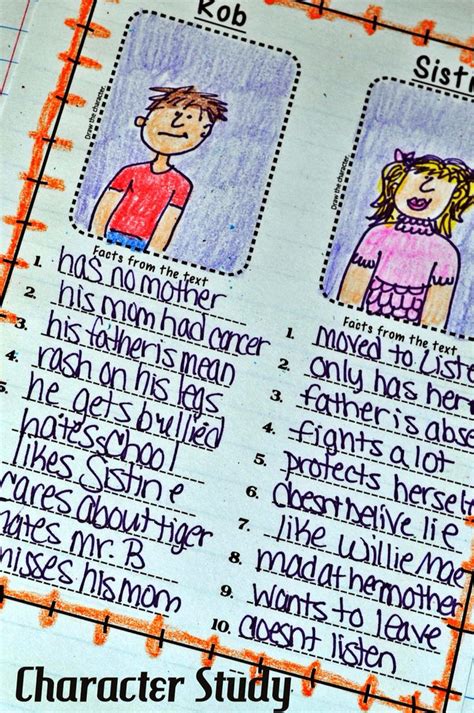 Rob
Draw the character.
Facts from the text
1. has no mother
2. his mom had cancer
3. his father is mean
4. rash on his legs
5. he gets bullied
hates school
likes Sistine
cares about tiger
hates Mr. B
misses his mom
Sisti
Draw the character.
Facts from the text
1. moved to Liste
2. only has her
3. father is abse
4. fights a lot
5. protects herself
6. doesnt belive lie
7. like Willie Mae
8. mad at her mother
9. wants to leave
10. doesnt listen
Character Study